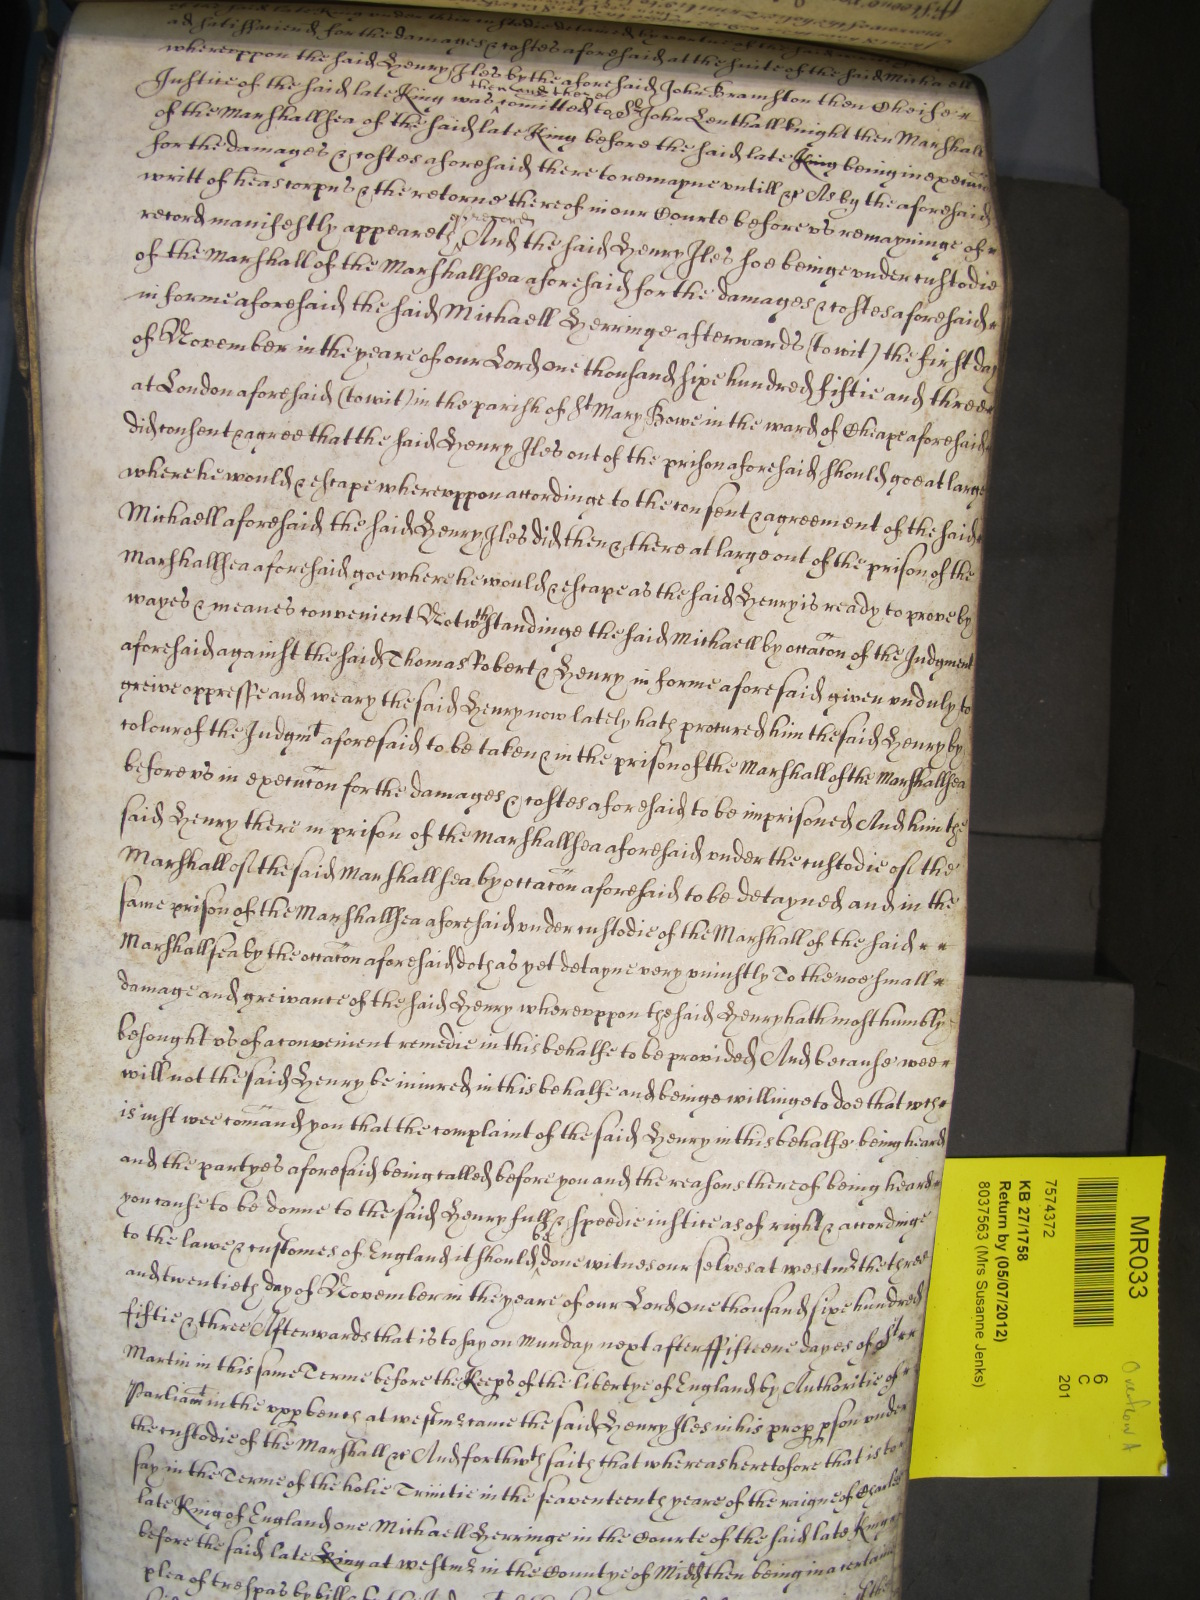 ad satisfaciend for the damages & costes aforesaid at the suite of the said Michaell
whereuppon the said Henry Iles by the aforesaid John Bramston then Cheife
Justice of the said late King was then and there comitted to Sr John Lenthall knight then Marshall
of the Marshallsea of the said late King before the said late King being in execucon
for the damages & costes aforesaid there to remayne untill &c As by the aforesaid
writt of heas corpus & the retorne thereof in our Courte before us remayninge of
record manifestly appeareth And the said Henry Iles soe beinge under custodie
of the Marshall of the Marshallsea aforesaid for the damages & costes aforesaid
in forme aforesaid the said Michaell Herringe afterwards (to wit) the first day
of November in the yeare of our Lord one thousand sixe hundred fiftie and three
at London aforesaid (to wit) in the parish of St Mary Bowe in the ward of Cheape aforesaid
did consent & agree that the said Henry Iles out of the prison aforesaid should goe at large
where he would & escape whereuppon accordinge to the consent & agreement of the said
Michaell aforesaid the said Henry Iles did then & there at large out of the prison of the
Marshallsea aforesaid goe where he would & escape as the said Henry is ready to prove by
wayes & meanes convenient Notwthstandinge the said Michaell by occacon of the Judgment
aforesaid against the said Thomas Robert & Henry in forme aforesaid given unduly to
greive oppresse and weary the said Henry now lately hath procured him the said Henry by
colour of the Judgmt aforesaid to be taken & in the prison of the Marshall of the Marshallsea
before us in execucon for the damages & costes aforesaid to be imprisoned And him the
said Henry there in prison of the Marshallsea aforesaid under the custodie of the
Marshall of the said Marshallsea by occacon aforesaid to be detayned and in the
same prison of the Marshallsea aforesaid under custodie of the Marshall of the said
Marshallsea by the occacon aforesaid doth as yet detayne very uniustly To the noe small
damage and greivance of the said Henry whereuppon the said Henry hath most humbly
besought us of a convenient remedie in this behalfe to be provided And because wee
will not the said Henry be iniured in this behalfe and beinge willinge to doe that wch
is iust wee comand you that the complaint of the said Henry in this behalfe being heard
and the partyes aforesaid being called before you and the reasons thereof being heard
you cause to be donne to the said Henry full & speedie iustice as of right & accordinge
to the lawe & customes of England it should be done witnes our selves at westmr the three
and twentieth day of November in the yeare of our Lord one thousand sixe hundred
fiftie & three Afterwards that is to say on Munday next after ffifteene dayes of St
Martin in this same Terme before the Keeps of the libertye of England by Authoritie of
Parliamt in the upp bench at westmr came the said Henry Iles in his prop pson under
the custodie of the Marshall &c And forthwth saith that whereas heretofore that is to
say in the Terme of the holie Trinitie in the seaventeenth yeare of the raigne of Charles
late King of England one Michaell Herringe in the Courte of the said late King
before the said late King at westmr in the Countye of Midd then being in a certaine
plea of trespas by bill
MR033
7574372
KB 27/1758
Return by (05/07/2012)
8037563 (Mrs Susanne Jenks)
6
C
201
Overflow A